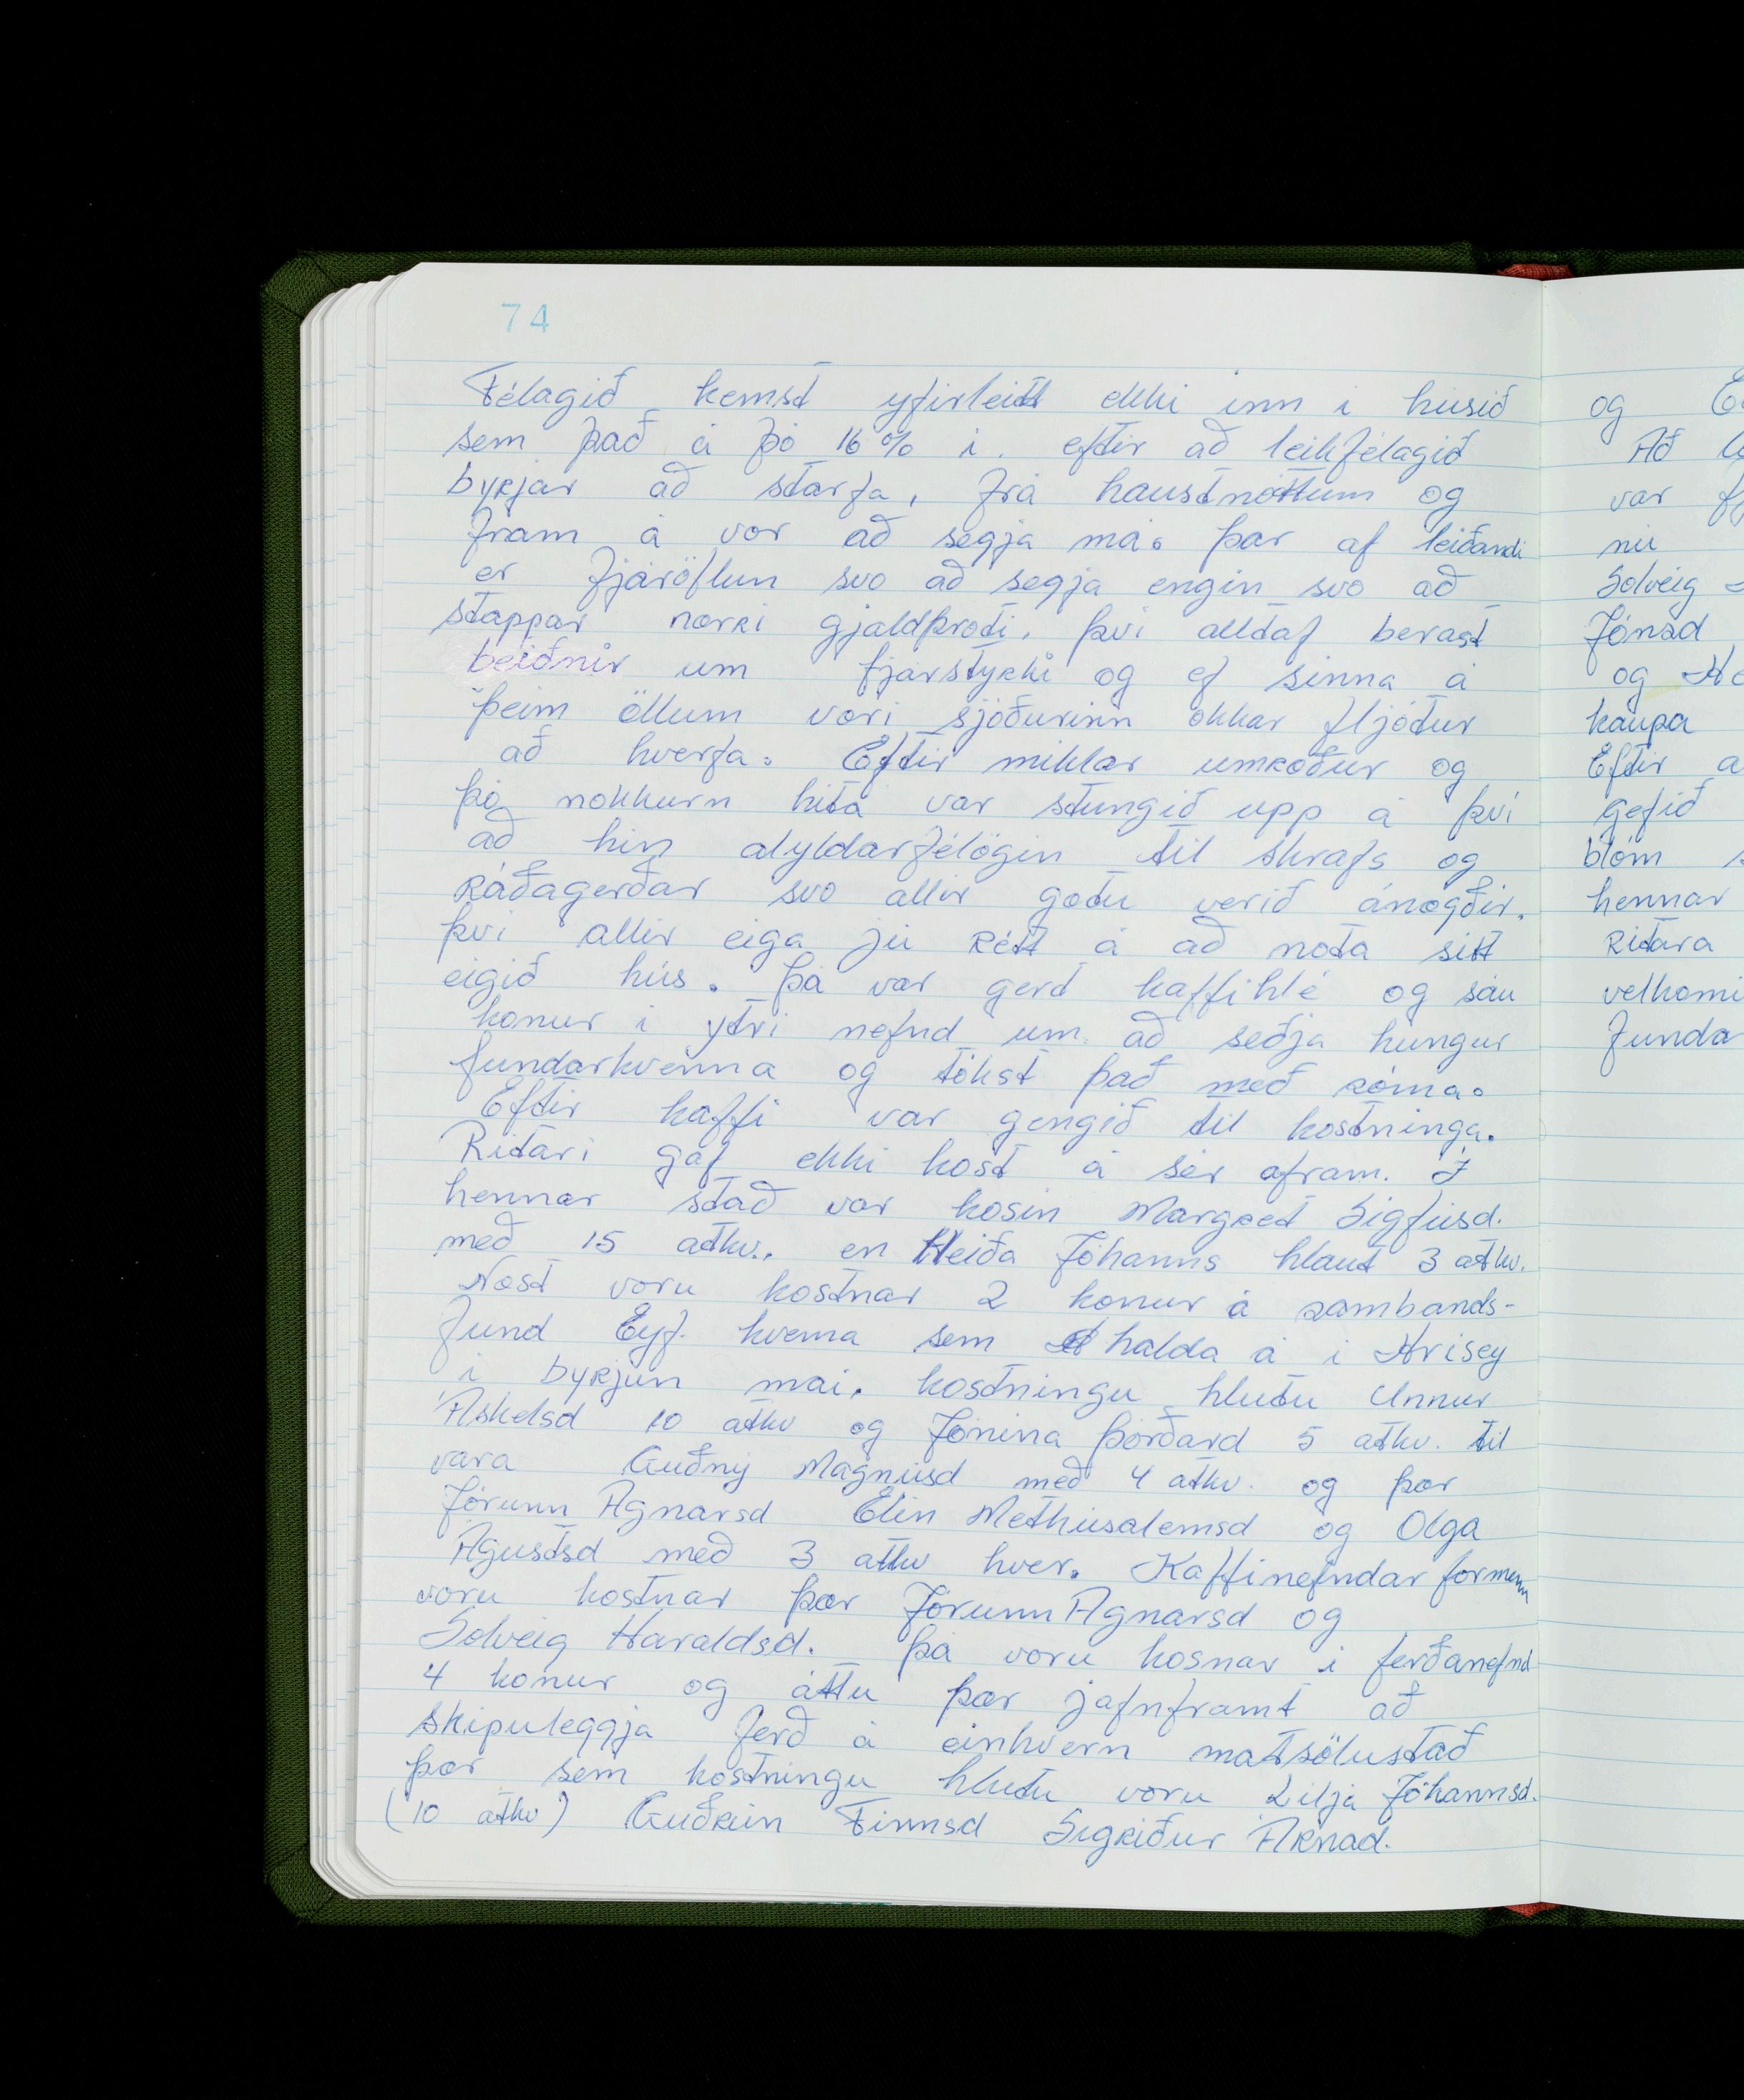 74
Félagið kemst yfirleitt ekki inn í húsið
sem það á þó 16% í. eftir að leikfélagið
byrjar að starfa, frá haustnóttum og
fram á vor að segja má. þar af leiðandi
er fjáröflun svo að segja engin svo að
stappar nærri gjaldþroti, því alltaf berast
beiðnir um fjárstyrki og ef sinna á
þeim öllum væri sjóðurinn okkar fljótur
að hverfa. Eftir miklar umræður og
þó nokkurn hita var stungið upp á því
að hin aðyldarfélögin til skrafs og
Ráðagerðar svo allir gætu verið ánægðir.
því allir eiga jú Rétt á að nota sitt
eigið hús. þá var gert kaffihlé og sáu
konur í ytri nefnd um að seðja hungur
fundarkvenna og tókst það með sóma.
Eftir kaffi var gengið til kostninga.
Ritari gaf ekki kost á sér áfram. Í
hennar stað var kosin Margret Sigfúsd.
með 15 atkv. en Heiða Jóhanns hlaut 3 atkv.
Næst voru kostnar 2 konur á sambands-
fund Eyf. kvenna sem halda á í Hrísey
í byrjun mai. kostningu hlutu Unnur
Áskelsd 10 atkv og Jónína þórðard 5 atkv. til
vara Guðný Magnúsd með 4 atkv. og þær
Jórunn Agnarsd Elín Methúsalemsd og Olga
Ágústsd með 3 atkv hver. Kaffinefndar formenn
voru kostnar þær Jórunn Agnarsd og
Solveig Haraldsd. þá voru kosnar í ferðanefnd
4 konur og áttu þær jafnframt að
skipuleggja ferð á einhvern matsölustað
þær sem kostningu hlutu voru Lilja Jóhannsd.
(10 atkv) Guðrún Finnsd Sigríður Árnad.
og
Að
var
nú
Solveig
Jónsd
og
kaupa
Eftir a
gefið
blóm s
hennar
Ritara
velkomi
funda